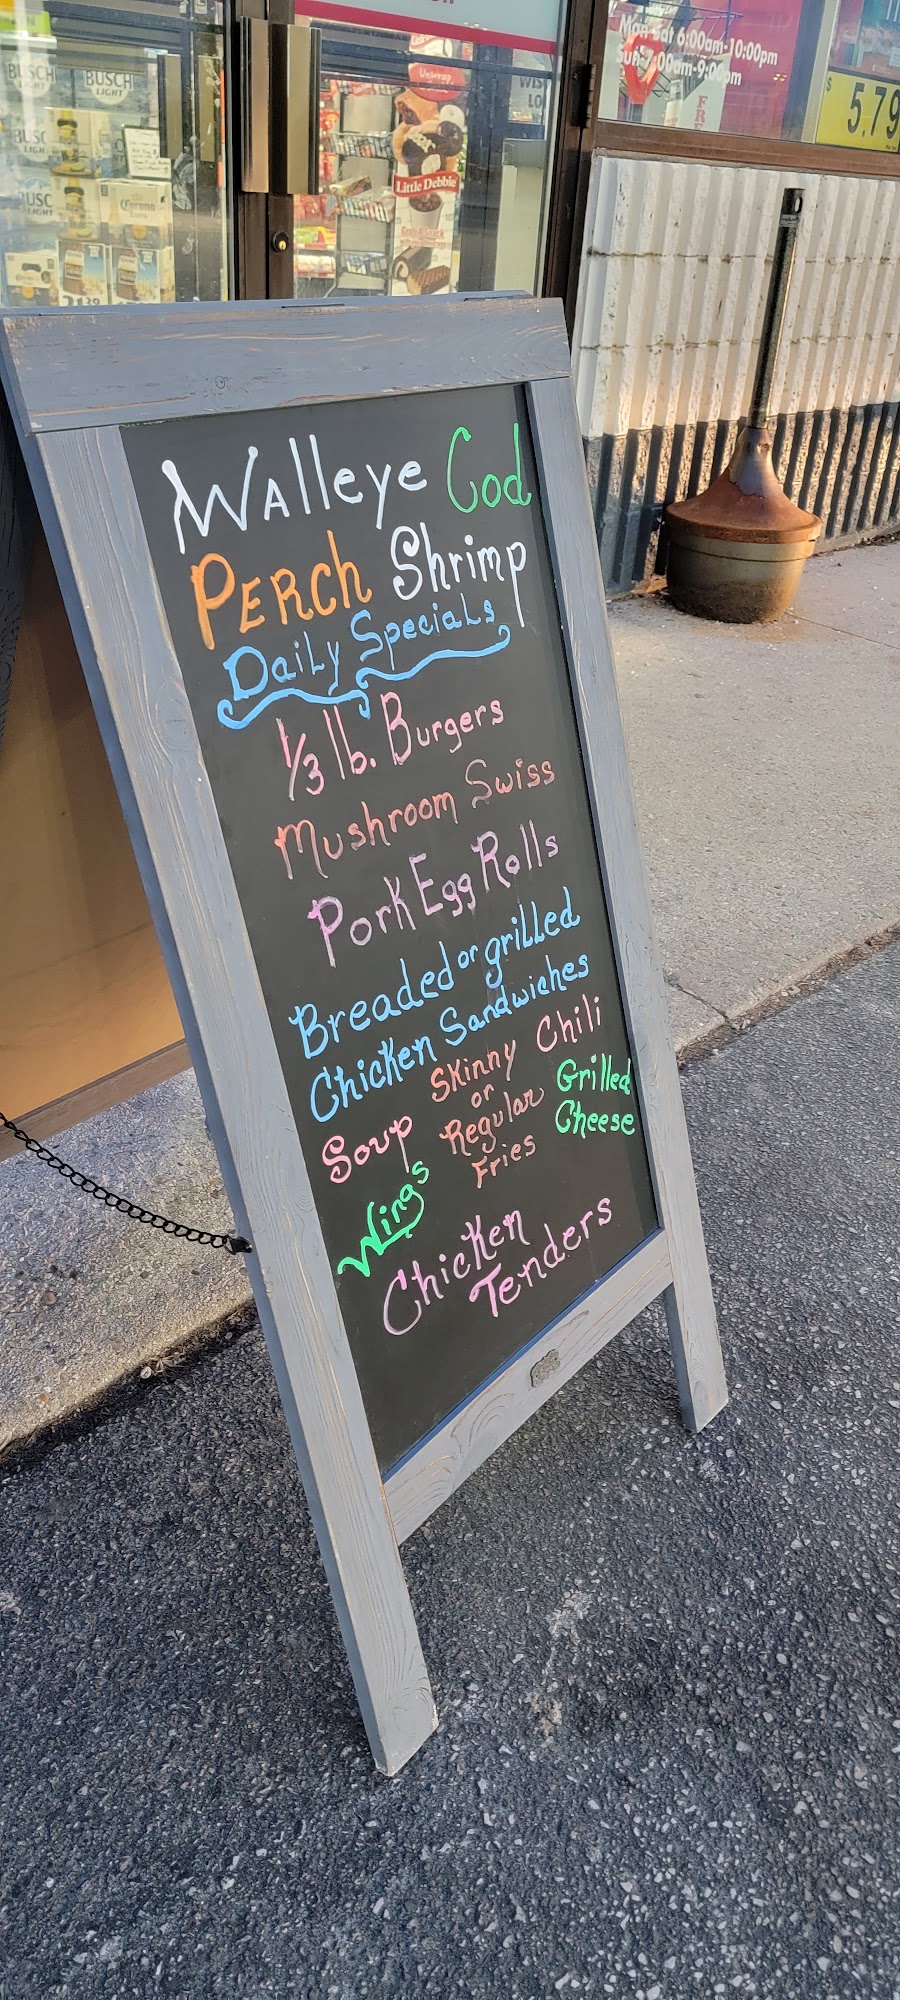 Mon Sat 6:00am-10:00pm
BUSCH
LIGHT
BUSCH
LIGHT
$ 5.79
Little Debbie
Corona
WAlleye Cod
PERCh Shrimp
DaiLy SpeciaLs
1/3 lb. Burgers
Mushroom Swiss
Pork Egg Rolls
Breaded or grilled
Chicken Sandwiches
Soup
Skinny
or
Regular
Fries
Chili
Grilled
Cheese
Wings
Chicken
Tenders